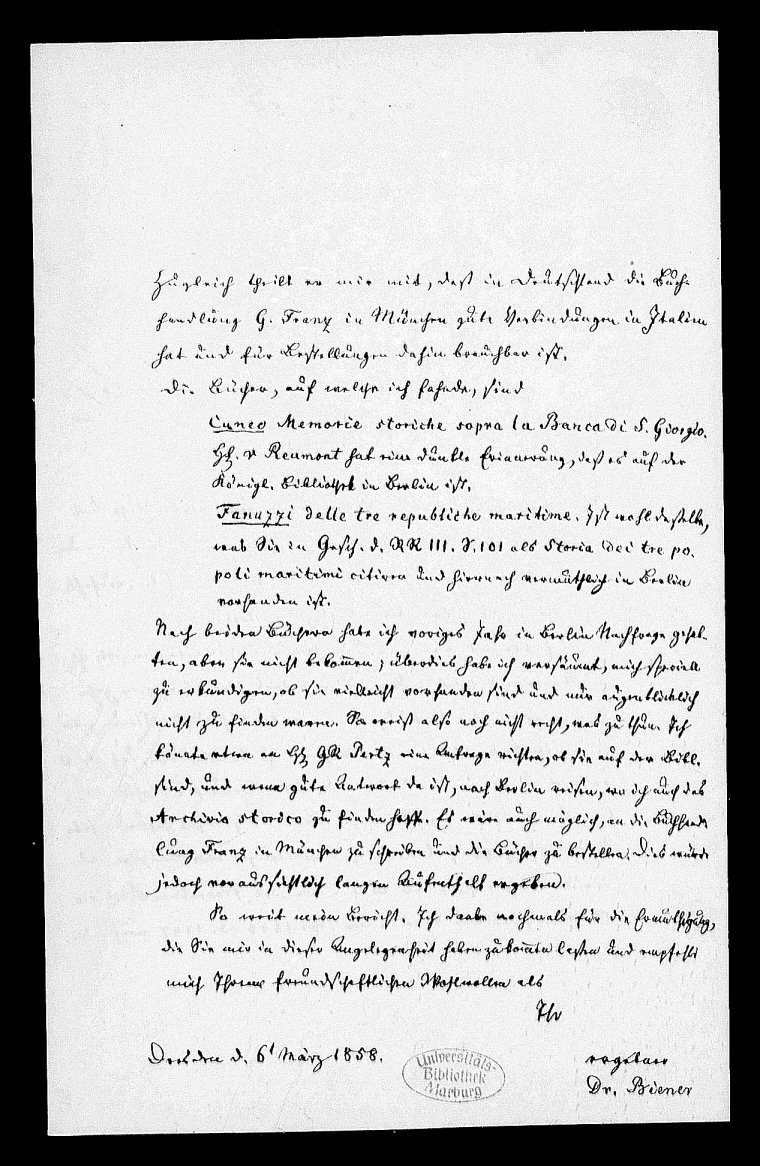 Zugleich theilt er mir mit, daß in Deutschland die Buch-
handlung G. Franz in München gute Verbindungen in Italien
hat und für Bestellungen dahin brauchbar ist.
Die Bücher, auf welche ich fahnde, sind
Cuneo Memorie storiche sopra la Banca di S. Giorgio.
H. v Reumont hat eine dunkle Erinnerung, daß es auf der
Königl. Bibliothek in Berlin ist.
Fanuzzi delle tre republiche maritime. Ist wohl dasselbe,
was Sie in Gesch. d. RR III. S. 101 als Storia dei tre po-
poli maritimi citiren und hiernach vermuthlich in Berlin
vorhanden ist.
Nach beiden Büchern habe ich voriges Jahr in Berlin Nachfrage gehal-
ten, aber sie nicht bekommen; überdies habe ich versäumt, mich speciell
zu erkundigen, ob sie vielleicht vorhanden sind und nur augenblicklich
nicht zu finden waren. So weiß ich also noch nicht recht, was zu thun. Ich
könnte etwa an H. GR Pertz eine Anfrage richten, ob sie auf der Bibl.
sind, und wenn gute Antwort da ist, nach Berlin reisen, wo ich auch das
Archivio storico zu finden hoffe. Es wäre auch möglich, an die Buchhand-
lung Franz in München zu schreiben und die Bücher zu bestellen. Dies würde
jedoch voraussichtlich langen Aufenthalt ergeben.
So weit mein Bericht. Ich danke nochmals für die Ermuthigung,
die Sie mir in dieser Angelegenheit haben zukommen lassen und empfehle
mich Ihrem freundschaftlichen Wohlwollen als
Ihr
Dresden d. 6t März 1858.
ergebener
Dr. Biener
Universitäts-
Bibliothek
Marburg